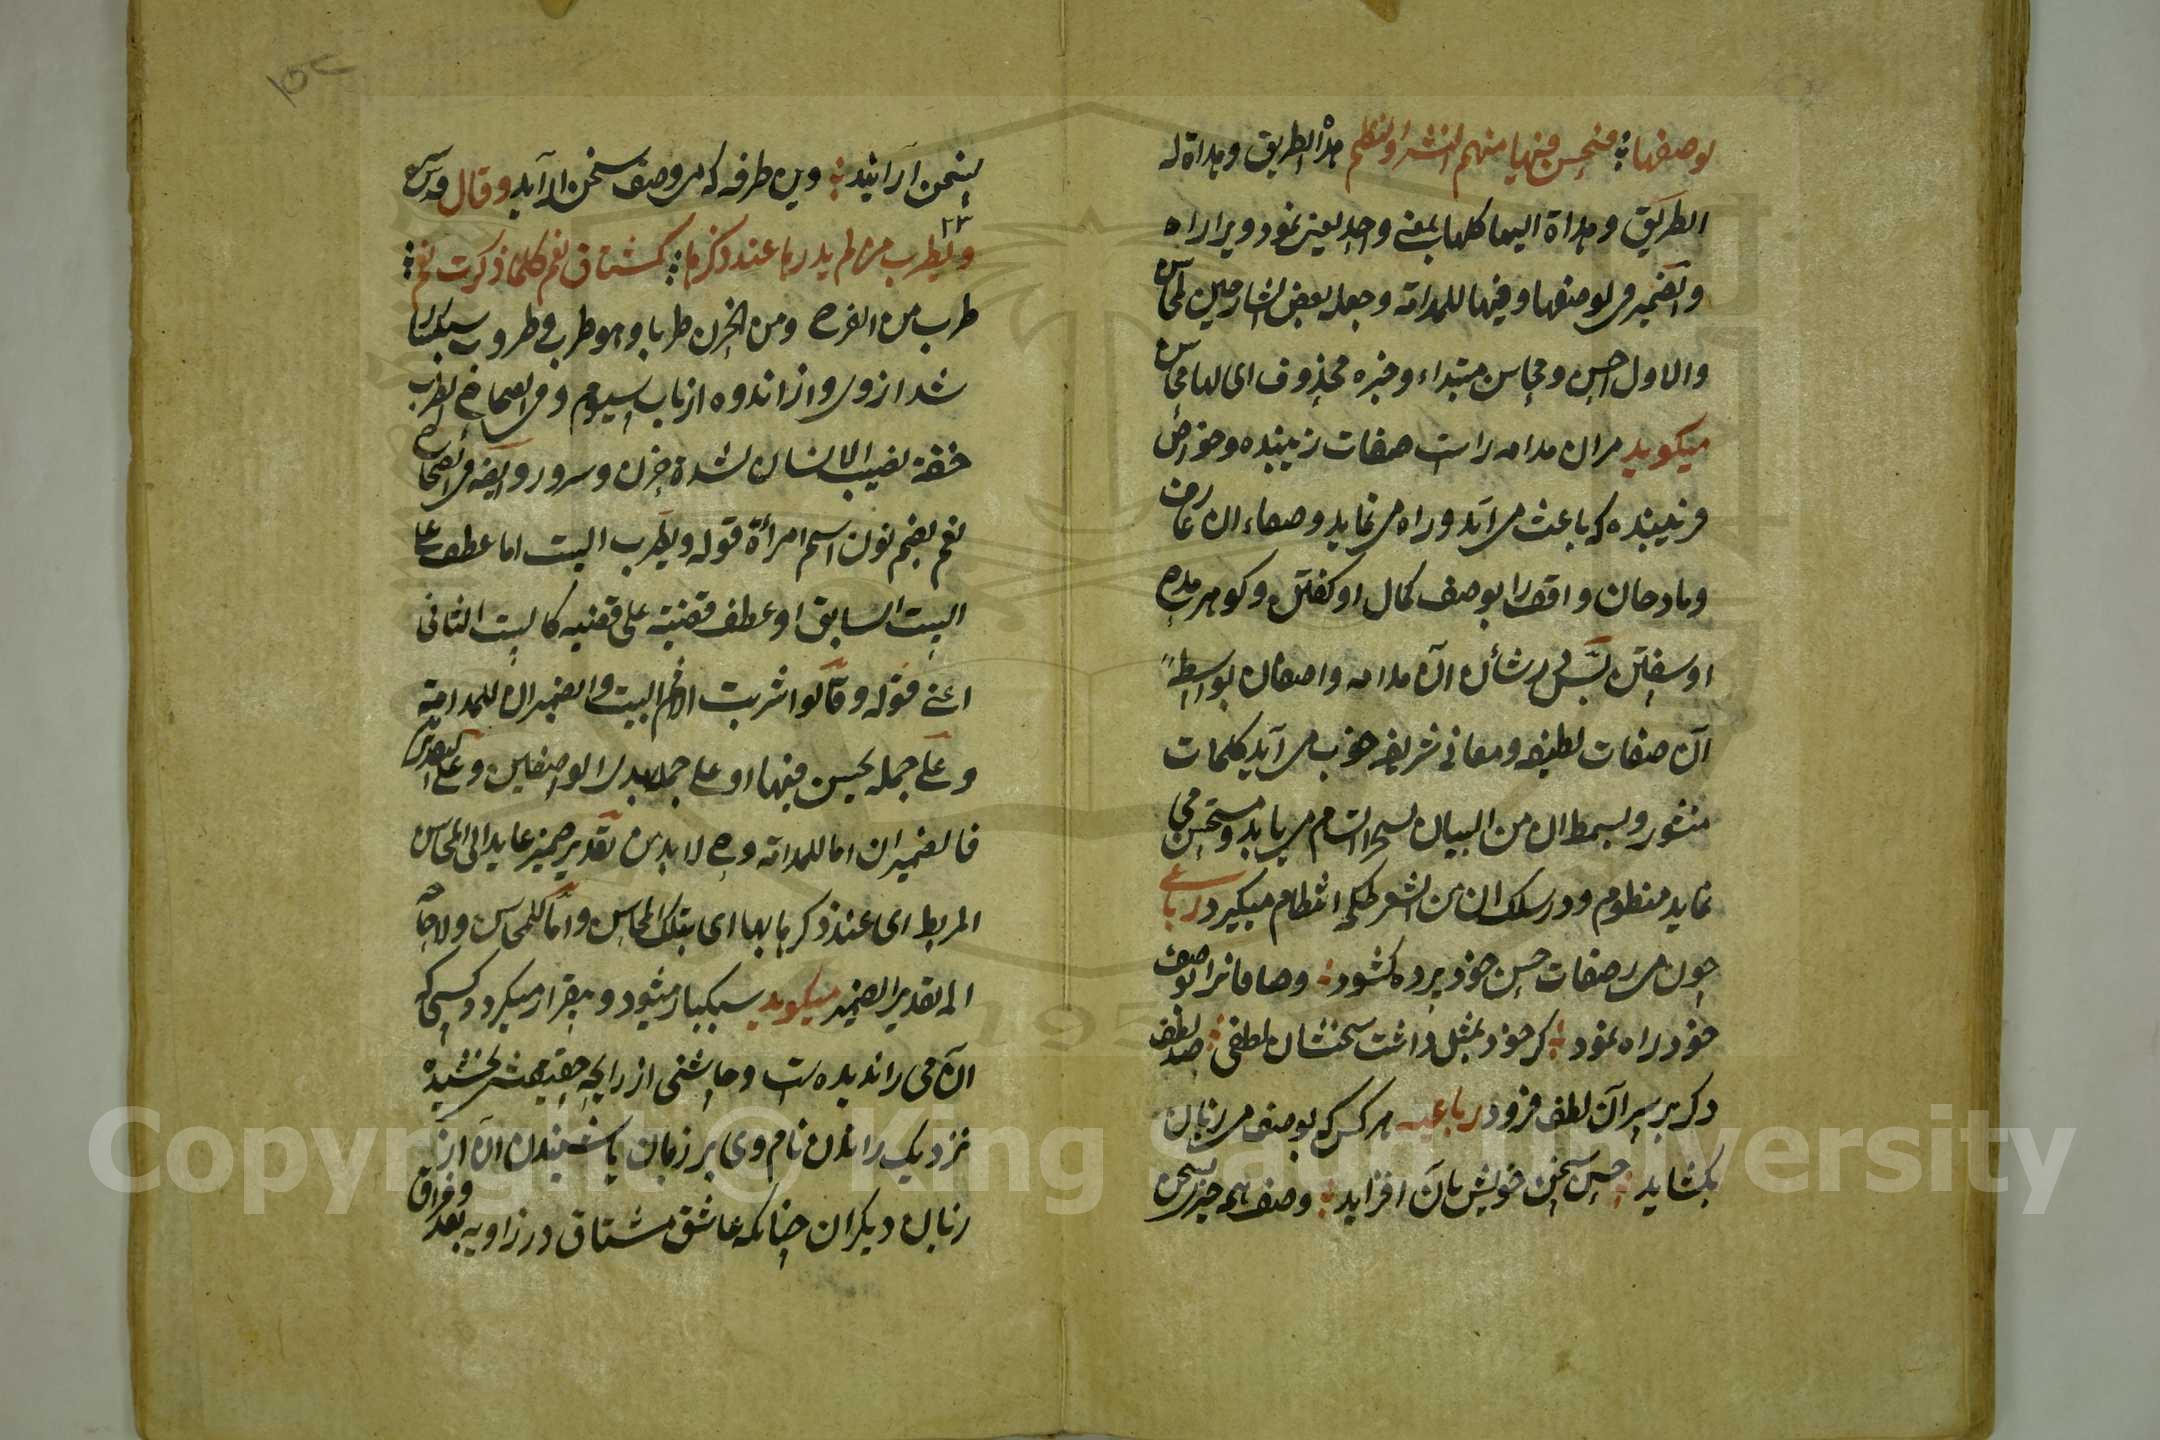 بوصفها فیحسن فیها منهم النثر والنظم هداه الطریق وهداة له
الطریق وهداة الیها کلها بمعنی واحد یعنی نمود ویرا راه
والضمیر فی بوصفها وفیها للمدامة وجعله بعض الشارحین لمحاسن
والاول احسن ومحاسن مبتداء وخبره محذوف ای لها محاسن
میکوید مران مدامه راست صفات زیبنده وخواص
فریبنده که باعث می آید وراه می نماید وصفاء ان عارف
ومادحان واقف را بوصف کمال او کفتن وکوهر مدح
او سفتن پس در شأن آن مدامه واصفان بواسطهٔ
آن صفات لطیفه ومعانی شریفه خوب می آید کلمات
منثور وبسمط ان من البیان لسحرا التیام می یابد ومستحسن می
نماید منظوم ودر سلک ان من الشعر لحکمة انتظام میکیرد رباعی
چون می ز صفات حسن خود پرده کشود وصافانرا بوصف
خود راه نمود کر خود بمثل داشت سخنشان لطفی صد لطف
دکر بر سر آن لطف فزود رباعیه هر کس که بوصف می زبان
بکشاید حسن سخن خویش بآن افزاید وصف همه چیز بسخن
بسخن آرایند وین طرفه که می وصف سخن آراید وقال قدس سره
۲۳
ویطرب من لم یدرها عند ذکرها کمشتاق نعم کلما ذکرت نعم
طرب من الفرح ومن الحزن طربا وهو طرب وطروب سبکسار
شد از وی واز اندوه از باب سیوم وفی الصحاح الطرب
خفة تصیب الانسان لشدة حزن وسرور وایضه فی الصحاح
نعم بضم نون اسم امرأة قوله ویطرب البیت اما عطف علی
البیت السابق او عطف قضیة علی قضیه کالبیت الثانی
اعنی قوله وقالوا شربت الاثم البیت والضمیران للمدامة
وعلی جمله یحسن فیها او علی جمله یهدی الواصفین وعلی التقدیرین
فالضمیران اما للمدامة وح لا بد من تقدیر ضمیر عاید الی المحاسن
للربط ای عند ذکرها بها ای بتلک المحاسن واما للمحاسن ولا حاجة
الی تقدیر الضمیر میکوید سبکبار میشود وبیقرار میکردد کسی که
آن می را ندیده است وچاشنی از رایحه حقیقتش نچشیده
نزدیک راندن نام وی بر زبان یا شنیدن آن از
زبان دیکران چنانکه عاشق مشتاق در زاویه بعد وفراق